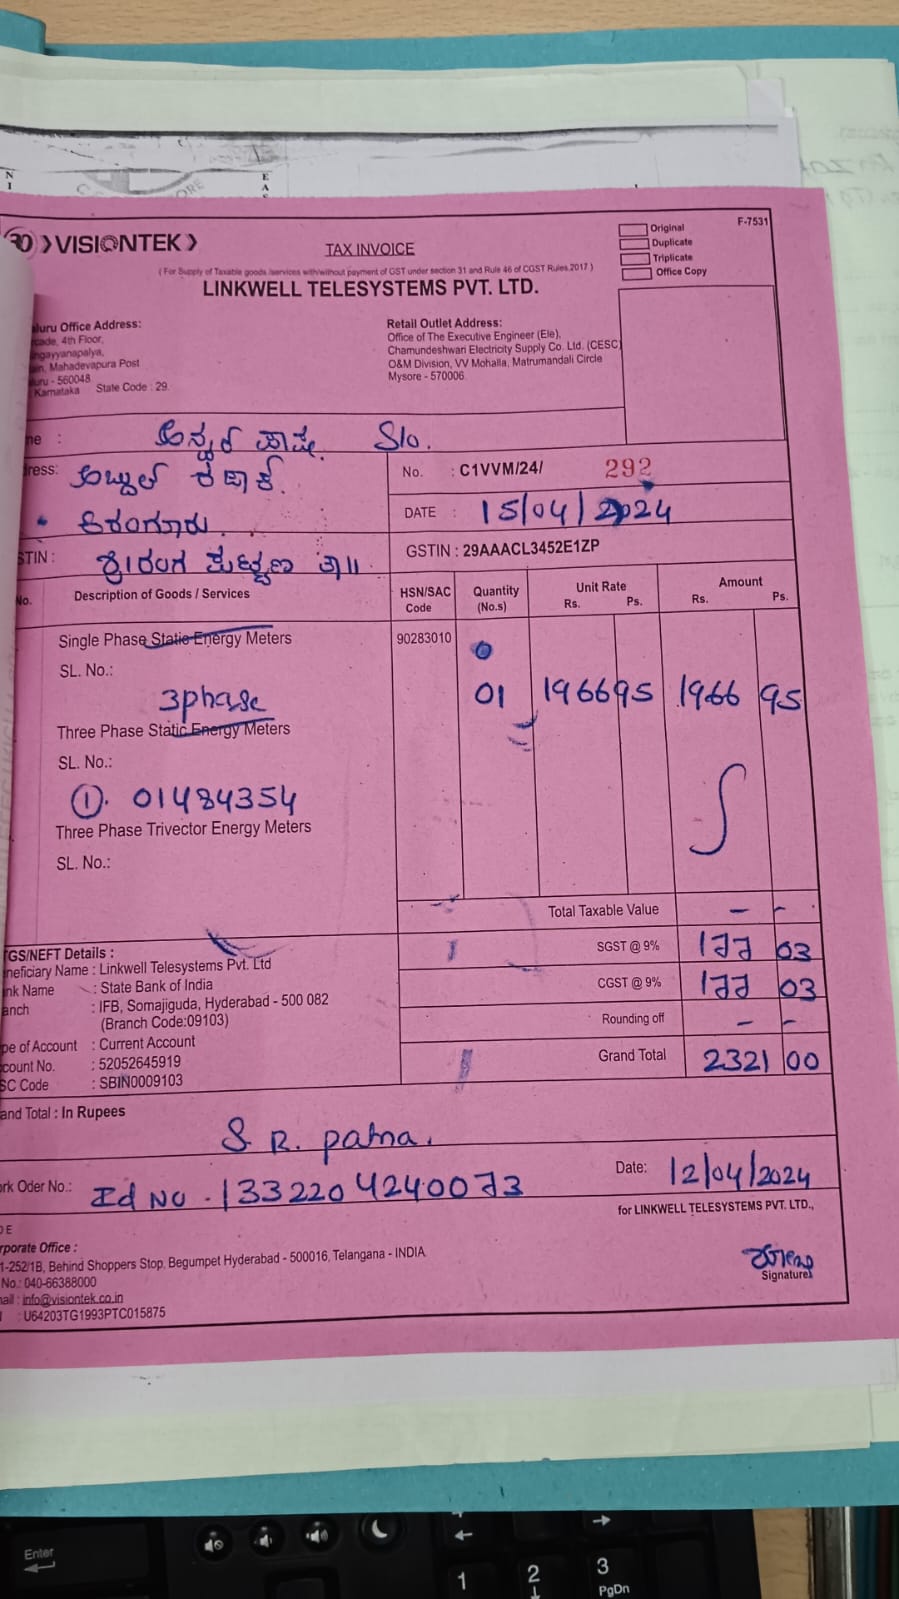 VISIONTEK
TAX INVOICE
Original
Duplicate
Triplicate
Office Copy
F-7531
( For Supply of Taxable goods /services with/without payment of GST under section 31 and Rule 46 of CGST Rules 2017 )
LINKWELL TELESYSTEMS PVT. LTD.
Office Address:
4th Floor,
Mahadevapura Post
- 560048
Karnataka State Code : 29
Retail Outlet Address:
Office of The Executive Engineer (Ele),
Chamundeshwari Electricity Supply Co. Ltd. (CESC)
O&M Division, VV Mohalla, Matrumandali Circle
Mysore - 570006
: ಅನ್ಸರ್ ಪಾಷ. S/o.
ಅಬ್ದುಲ್
No. : C1VVM/24/ 292
DATE : 15/04/2024
ಕಿರಂಗೂರು
GSTIN : 29AAACL3452E1ZP
ಶ್ರೀರಂಗ ಪಟ್ಟಣ ತಾ||
No. Description of Goods / Services HSN/SAC Code Quantity (No.s) Unit Rate Rs. Ps. Amount Rs. Ps.
Single Phase Static Energy Meters 90283010
SL. No.:
3phase 01 1966 95 1966 95
Three Phase Static Energy Meters
SL. No.:
①. 01484354
Three Phase Trivector Energy Meters
SL. No.:
Total Taxable Value — -
SGST @ 9% 177 03
CGST @ 9% 177 03
Rounding off — -
Grand Total 2321 00
GS/NEFT Details :
neficiary Name : Linkwell Telesystems Pvt. Ltd
nk Name : State Bank of India
anch : IFB, Somajiguda, Hyderabad - 500 082
(Branch Code:09103)
pe of Account : Current Account
count No. : 52052645919
SC Code : SBIN0009103
and Total : In Rupees
S. R. patna.
rk Oder No.: Id No . 1332204240073
Date: 12/04/2024
for LINKWELL TELESYSTEMS PVT. LTD.,
rporate Office :
1-252/1B, Behind Shoppers Stop, Begumpet Hyderabad - 500016, Telangana - INDIA
No.: 040-66388000
ail : info@visiontek.co.in
: U64203TG1993PTC015875
Signature
Enter
1
2
3
PgDn